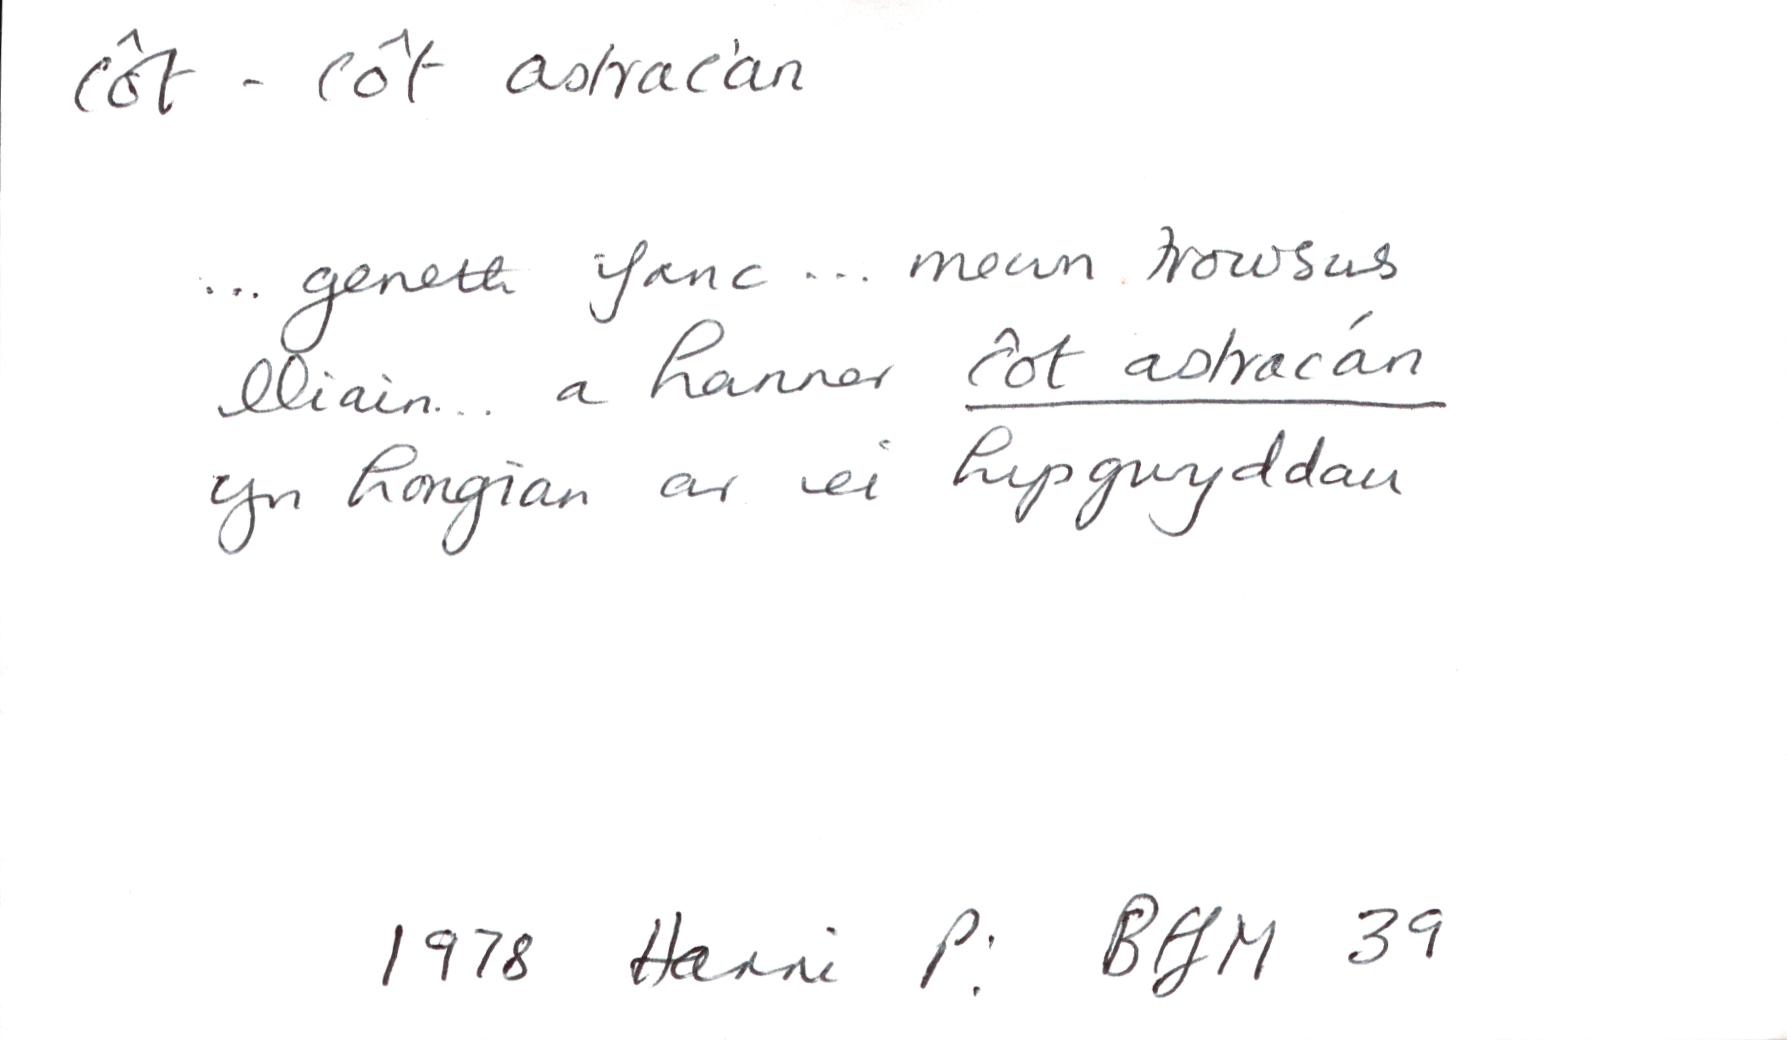 côt - côt astracán
... geneth ifanc ... mewn trowsus
lliain... a hanner côt astracán
yn hongian ar ei hysgwyddau
1978 Harri P: BGM 39